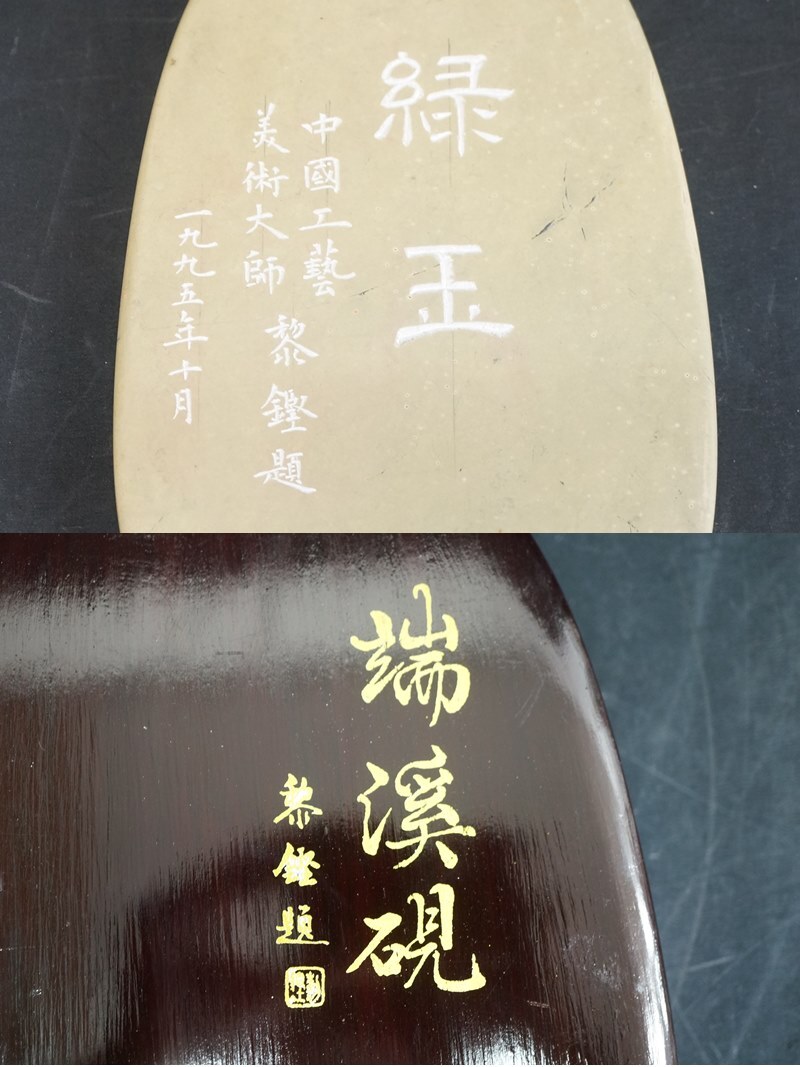 緑玉
中國工藝
美術大師
黎鏗題
一九九五年十月
端溪硯
黎鏗題